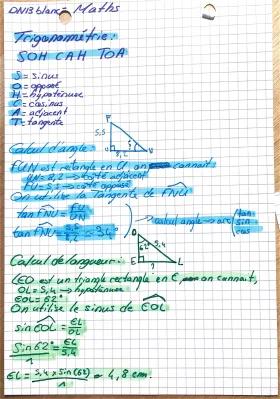 DNB blanc - Maths
Trigonométrie:
SOH CAH TOA
S = sinus
O = opposé
H = hypoténuse
C = cosinus
A = adjacent
T = tangente
F
5,5
U 8,2 N
Calcul d'angle:
FUN est rectangle en U, on connait
UN = 8,2 → coté adjacent
FU = 5,5 → coté opposé
On utilise la Tangente de FNU
tan FNU = FU/UN
tan FNU = 5,5/8,2 ≈ 34°
→ calcul angle → arc (tan sin cos
O
62° 5,4
E ? L
Calcul de longueur:
LEO est un triangle rectangle en E, on connait,
OL = 5,4 → hypoténuse
EOL = 62°
On utilise le sinus de EOL
sin EOL = EL/OL
Sin 62°/1 = EL/5,4
EL = 5,4 x sin(62)/1 ≈ 4,8 cm.